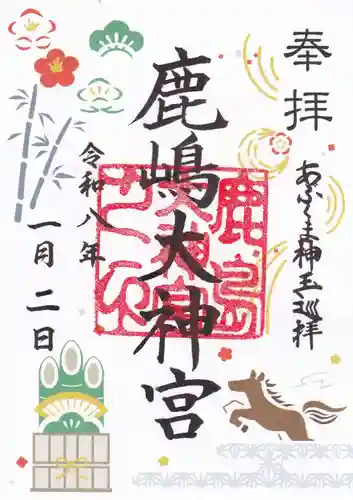 奉拝
あぶくま神玉巡拝
鹿嶋大神宮
令和八年
一月二日